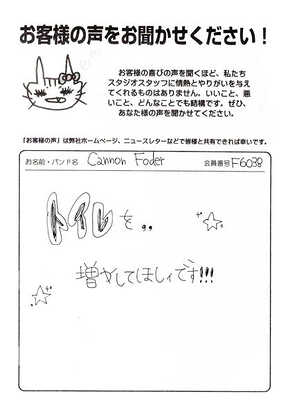 お客様の声をお聞かせください！
お客様の喜びの声を聞くほど、私たち
スタジオスタッフに情熱とやりがいを与え
てくれるものはありません。いいこと、悪
いこと、どんなことでも結構です。ぜひ、
あなた様の声を聞かせてください。
「お客様の声」は弊社ホームページ、ニュースレターなどで皆様と共有できれば幸いです。
お名前・バンド名 Cannon Foder 会員番号 F6038
トイレを..
増やしてほしいです!!!